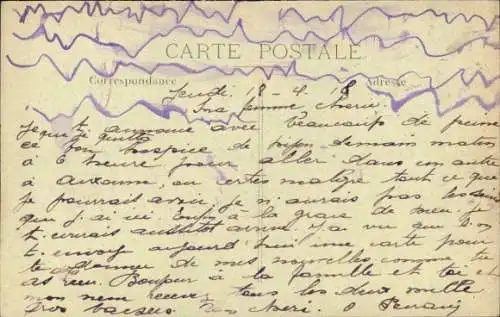 CARTE POSTALE
Correspondance Adresse
Jeudi 18-4.18
Ma femme chérie
Je t annonce avec beaucoup de peine
que je quitte
ce bon hospice de demain matin
à heure pour aller dans un autre
à Auxonne, ou certes malgré tout ce que
je pourrais avoir, je n'aurais pas
que j'ai ici. Enfin à la grace de Dieu. Je
t. aussitôt arrivé. J'ai vu que l'on
t. aujourd'hui une carte pour
te donner de mes nouvelles comme tu
as reçu. Bonjour à la famille et toi et
mon recevez tous les deux mille
gros baisers.